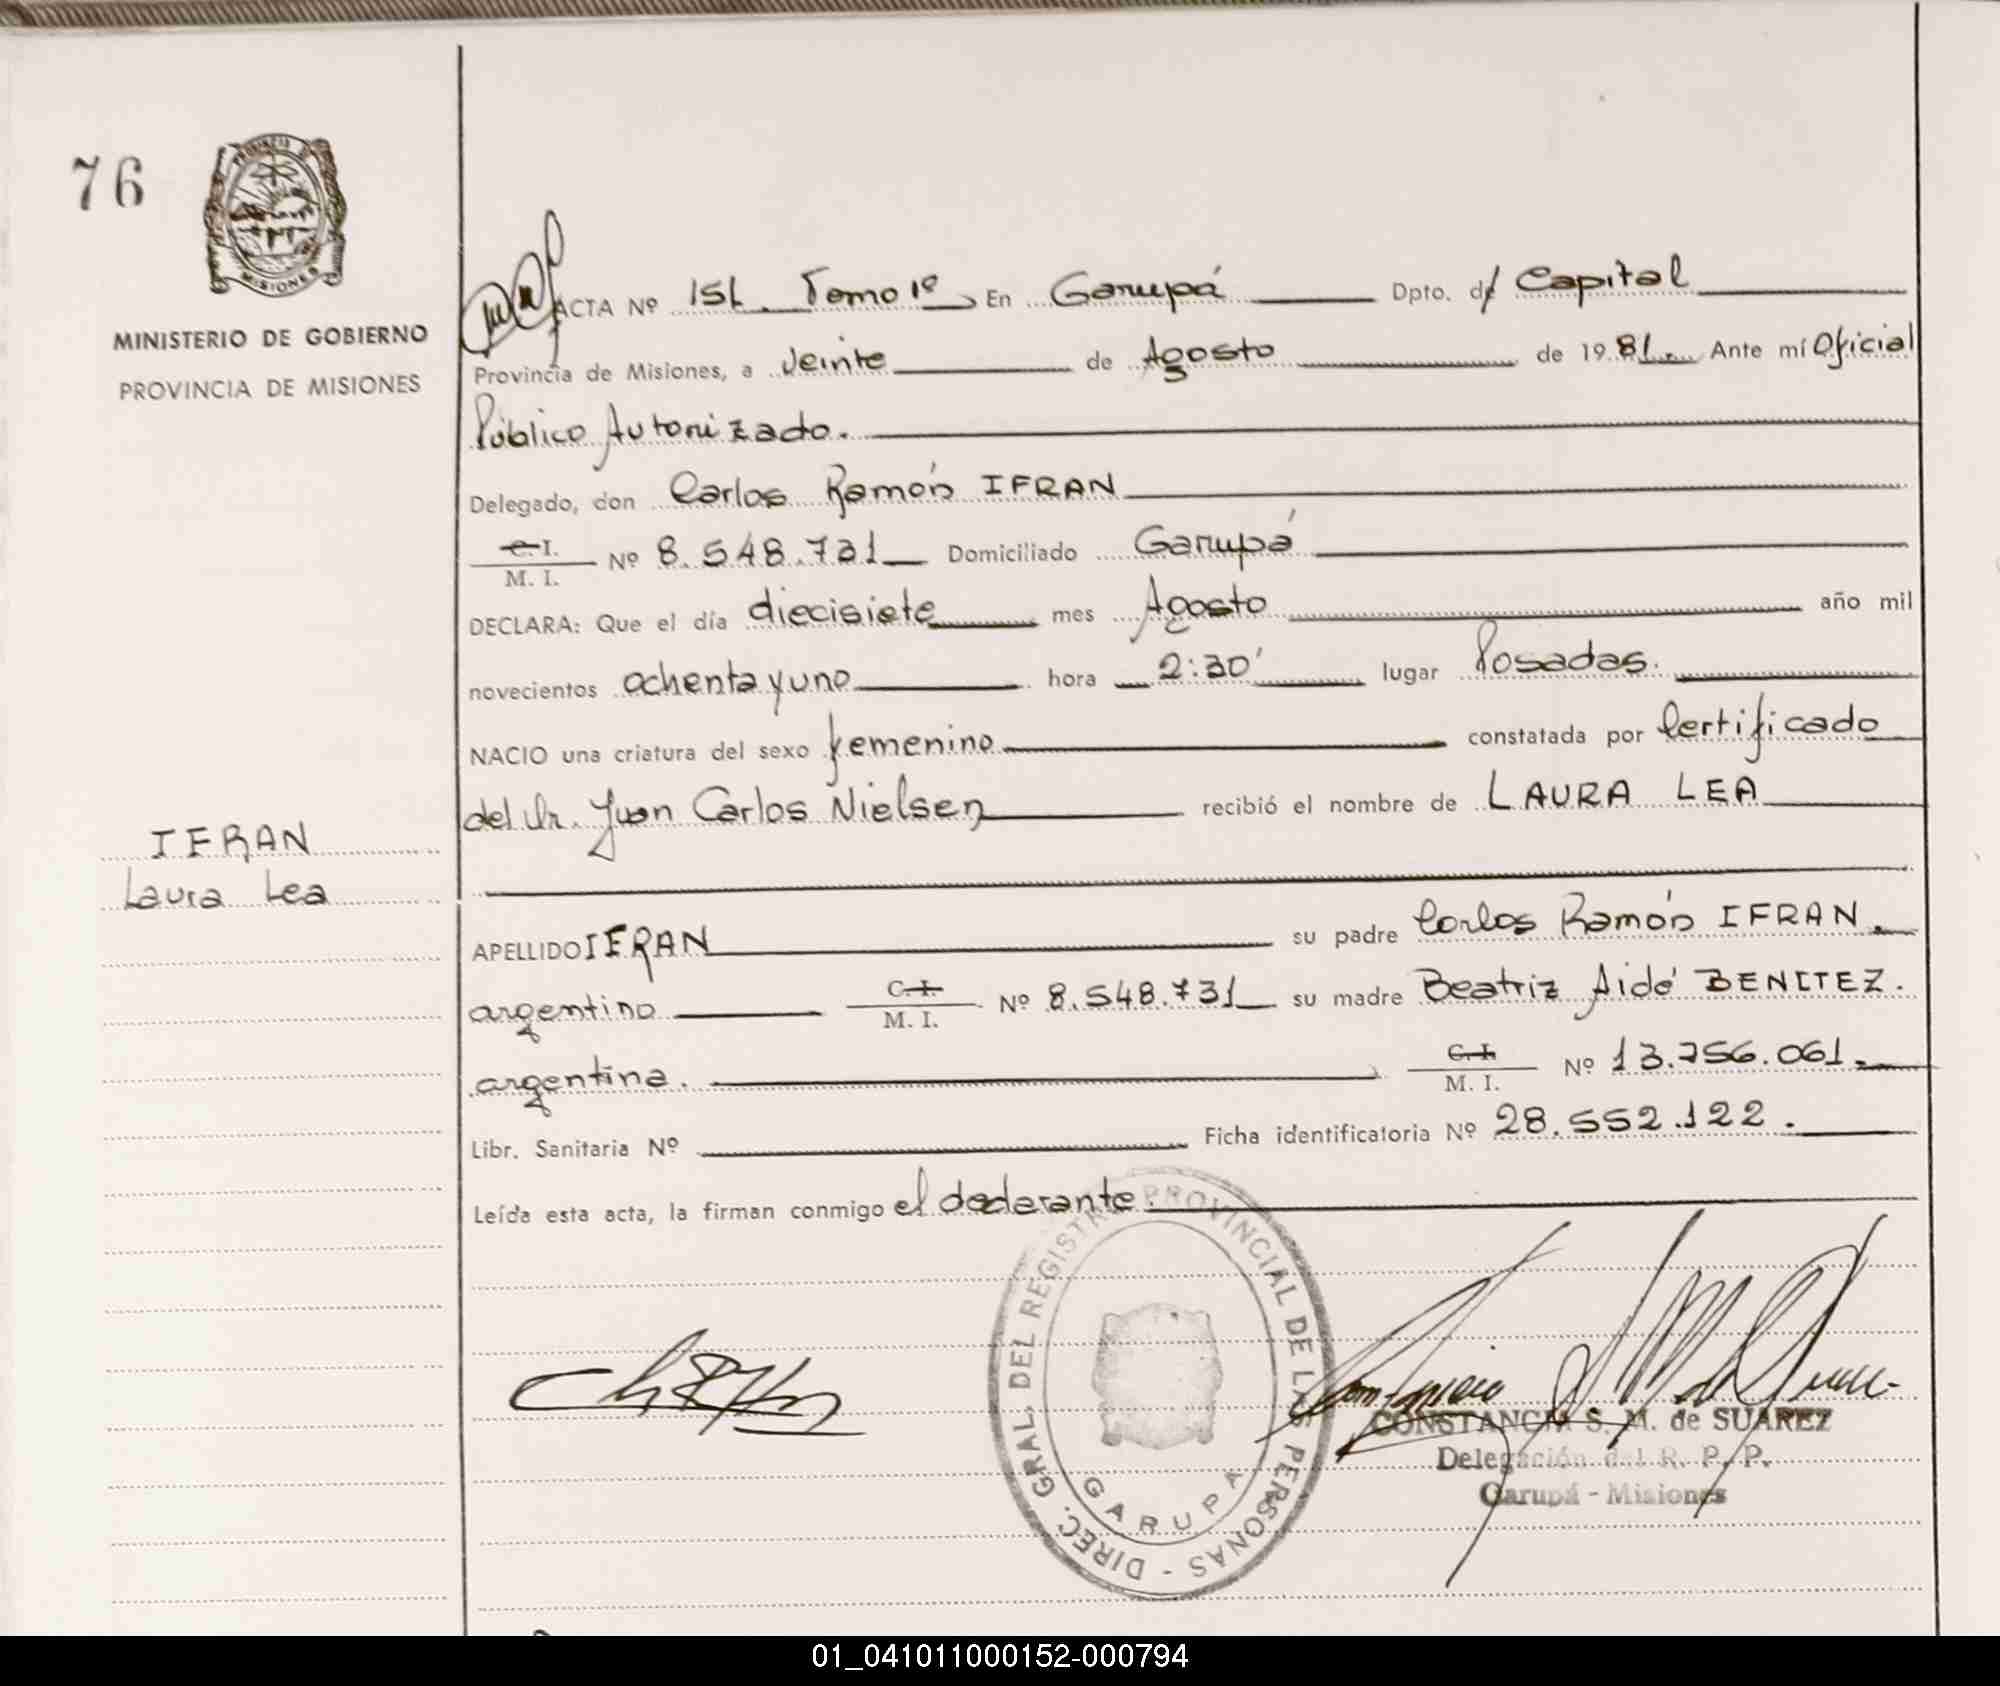 76
MISIONES
MINISTERIO DE GOBIERNO
PROVINCIA DE MISIONES
IFRAN
Laura Lea
ACTA Nº 151. Tomo 1º En Garupá Dpto. de Capital
Provincia de Misiones, a Veinte de Agosto de 1981. Ante mí Oficial
Público Autorizado.
Delegado, don Carlos Ramón IFRAN
C.I.
M. I. Nº 8.548.731 Domiciliado Garupá
DECLARA: Que el día diecisiete mes Agosto año mil
novecientos ochenta y uno hora 2:30' lugar Posadas.
NACIO una criatura del sexo femenino constatada por Certificado
del Dr. Juan Carlos Nielsen recibió el nombre de LAURA LEA
APELLIDO IFRAN su padre Carlos Ramón IFRAN.
argentino C.I. M. I. Nº 8.548.731 su madre Beatriz Aidé BENITEZ.
argentina. C.I. M. I. Nº 13.756.061.
Libr. Sanitaria Nº Ficha identificatoria Nº 28.552.122.
Leída esta acta, la firman conmigo el declarante.
DIREC. GRAL. DEL REGISTRO PROVINCIAL DE LAS PERSONAS -
GARUPA
CONSTANCIA S. M. de SUAREZ
Delegación del R. P. P.
Garupá - Misiones
01_041011000152-000794